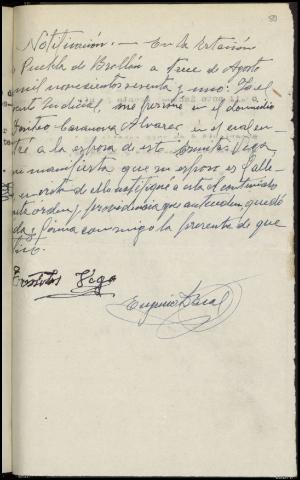 50
Notificacion.— En la Estación
Puebla de Brollón a trece de Agosto
mil novecientos sesenta y uno: Yo el
Judicial, me persone en el domicilio
Casanova Alvarez en el cual en-
tré a la esposa de este Vega,
manifiesta que su esposo es falle-
en vista de ello notifique a esta el contenido
orden y providencia que anteceden, quedó
firma conmigo la presente de que
Vega
Eugenio